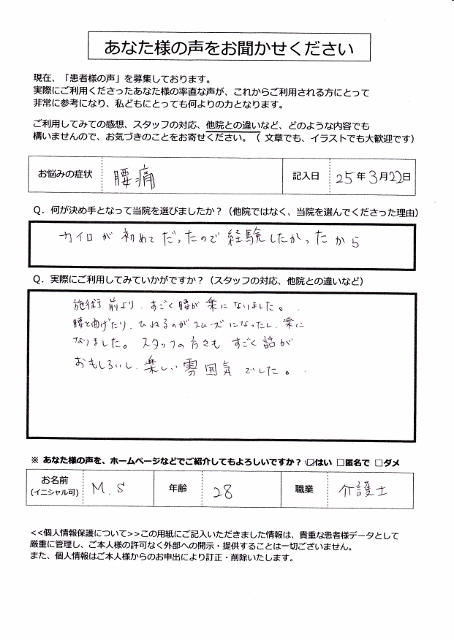 あなた様の声をお聞かせください
現在、「患者様の声」を募集しております。
実際にご利用くださったあなた様の率直な声が、これからご利用される方にとって
非常に参考になり、私どもにとっても何よりの力となります。
ご利用してみての感想、スタッフの対応、他院との違いなど、どのような内容でも
構いませんので、お気づきのことをお寄せください。（ 文章でも、イラストでも大歓迎です）
お悩みの症状 腰痛 記入日 25年3月22日
Q．何が決め手となって当院を選びましたか？（他院ではなく、当院を選んでくださった理由）
カイロが初めてだったので経験したかったから
Q．実際にご利用してみていかがですか？（スタッフの対応、他院との違いなど）
施術前より、すごく腰が楽になりました。
腰を曲げたり、ひねるのがスムーズになったし、楽に
なりました。スタッフの方々もすごく話が
おもしろいし、楽しい雰囲気でした。
※ あなた様の声を、ホームページなどでご紹介してもよろしいですか？ ☑はい □匿名で □ダメ
お名前 (イニシャル可) M.S 年齢 28 職業 介護士
<<個人情報保護について>>この用紙にご記入いただきました情報は、貴重な患者様データとして
厳重に管理し、ご本人様の許可なく外部への開示・提供することは一切ございません。
また、個人情報はご本人様からのお申出により訂正・削除いたします。